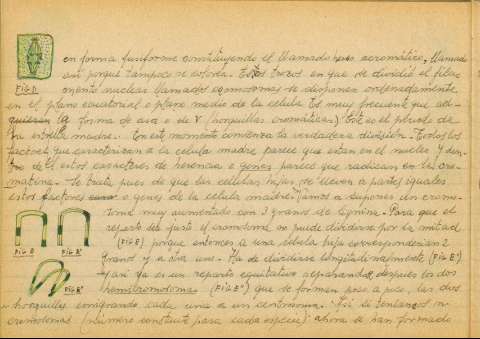 en forma fusiforme constituyendo el llamado huso acromático, llamado
así porque tampoco se colorea. Estos trozos en que se dividió el fila
FIG D mento nuclear llamados cromosomas se disponen ordenadamente
en el plano ecuatorial o plano medio de la celula. Es muy frecuente que ad-
quieran la forma de asa o de V (horquillas cromáticas). Este es el periodo de
la estrella madre. En este momento comienza la verdadera división. Todos los
factores que caracterizan a la celula madre parece que estan en el nucleo y den-
tro de el estos caracteres de herencia o genes parece que radican en la cro-
matina. Se trata pues de que las celulas hijas se lleven a partes iguales
estos factores o genes de la celula madre. Vamos a suponer un cromo-
soma muy aumentado con 3 granos de cromatina. Para que el
reparto sea justo el cromosoma no puede dividirse por la mitad
(FIG E) porque entonces a una celula hija corresponderían 2
FIG E FIG E' granos y a otra uno. Ha de dividirse longitudinalmente (FIG E')
y así ya es un reparto equitativo separandose despues los dos
FIG E" hemicromosomas (FIG E") que se forman poco a poco, las dos
horquillas emigrando cada una a un centrosoma. Si teníamos n
cromosomas (número constante para cada especie) ahora se han formado